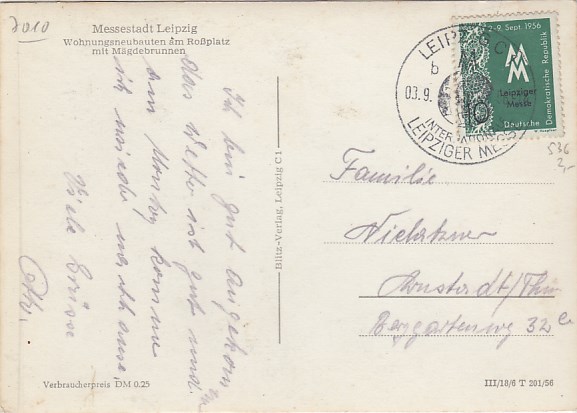 7010
Messestadt Leipzig
Wohnungsneubauten am Roßplatz
mit Mägdebrunnen
Ich bin gut angekom
das Wetter ist gut und
am Montag komme
ich wieder nach Hause,
Viele Grüsse
Blitz-Verlag, Leipzig C 1
2-9. Sept. 1956
MM
Leipziger
Messe
Deutsche Demokratische Republik
10
LEIPZIG C
b
03.9.
LEIPZIGER MESSE
536
2,-
Familie
Arnstadt/Thür
Berggartenweg 32
Verbraucherpreis DM 0.25
III/18/6 T 201/56